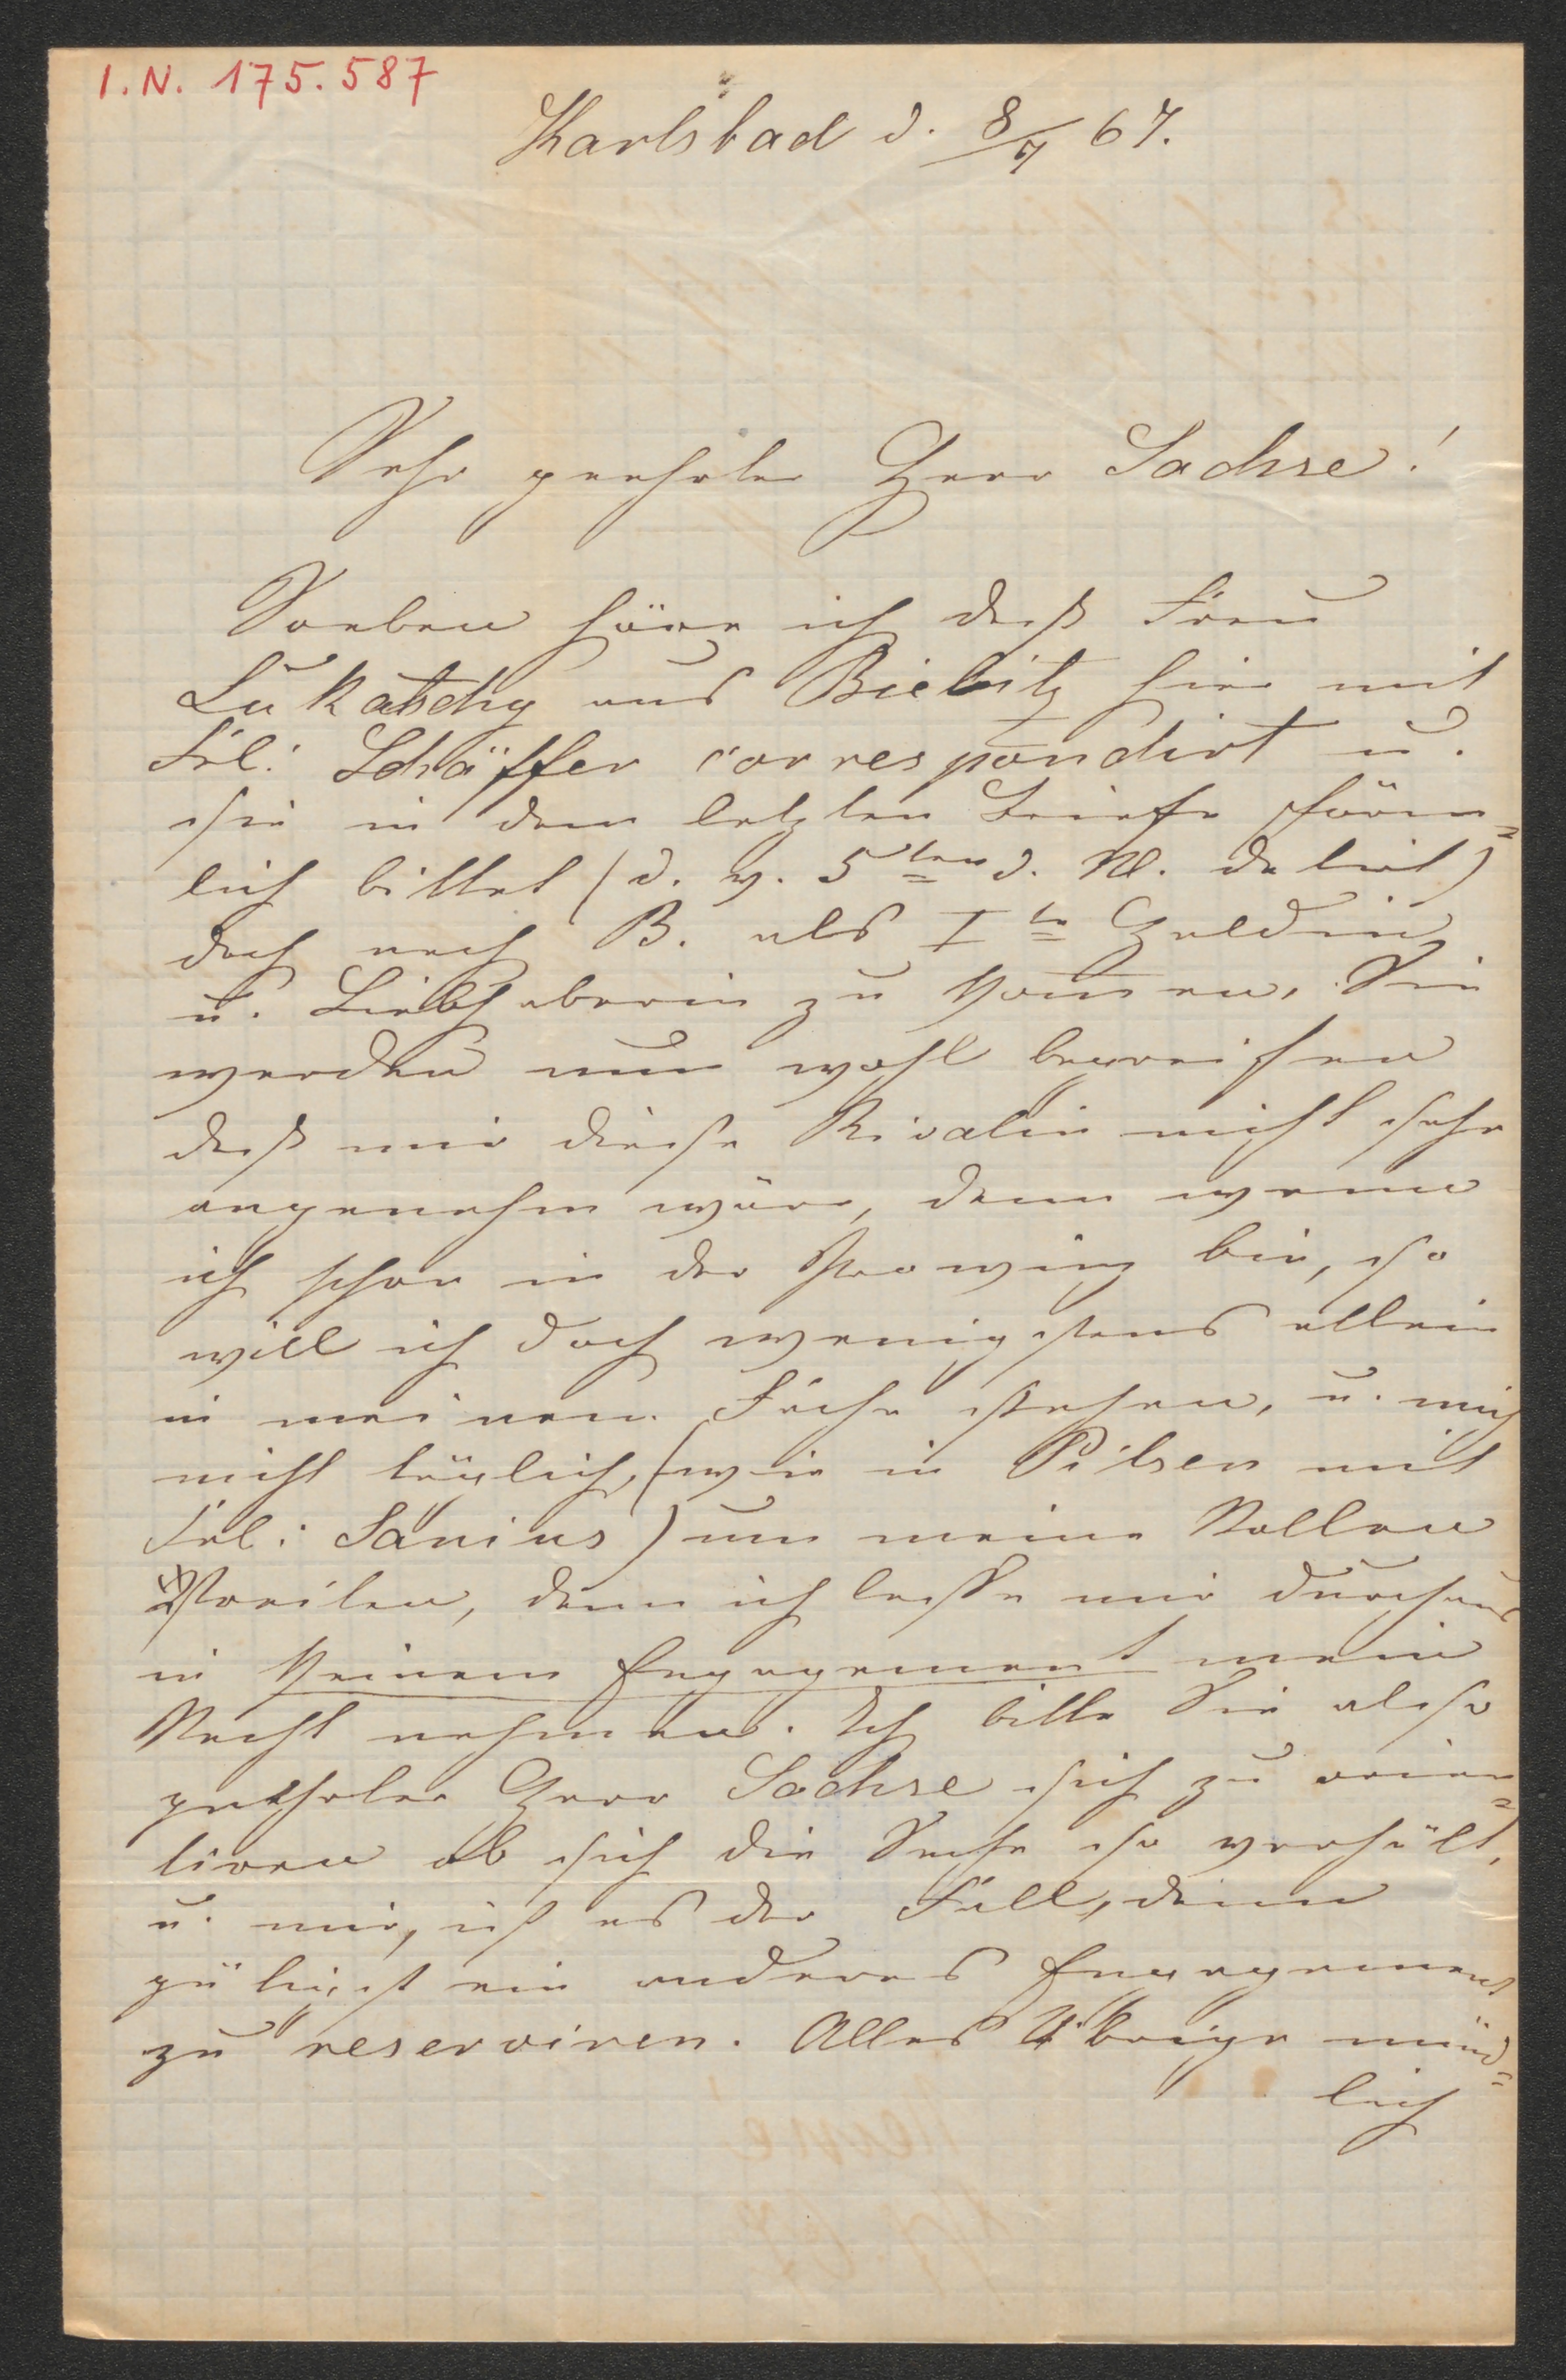 I.N. 175.587
Karlsbad d. 8/7 67.
Sehr geehrter Herr Sachse!
Soeben höre ich daß Frau
Lukatschy aus Bielitz hier mit
Frl: Schäffer correspondirt u.
sie in dem letzten Briefe förm=
lich bittet (d. v. 5ten d. M. datirt)
doch nach B. als Ite Heldin
u. Liebhaberin zu kom̄en. Sie
werden nun wohl begreifen
daß mir diese Rivalin nicht sehr
angenehm wäre, denn wenn
ich schon in der Provinz bin, so
will ich doch wenigstens allein
in meinem Fache stehen, u. mich
nicht täglich, (wie in Pilsen mit
Frl: Sanius) um meine Rollen
streiten, denn ich lasse mir durchaus
in keinem Engagement mein
Recht nehmen. Ich bitte Sie also
geehrter Herr Sachse sich zu orien=
tiren ob sich die Sache so verhält,
u. mir, ist es der Fall, dann
gütigst ein anderes Engagement
zu reserviren. Alles Übrige münd=
lich